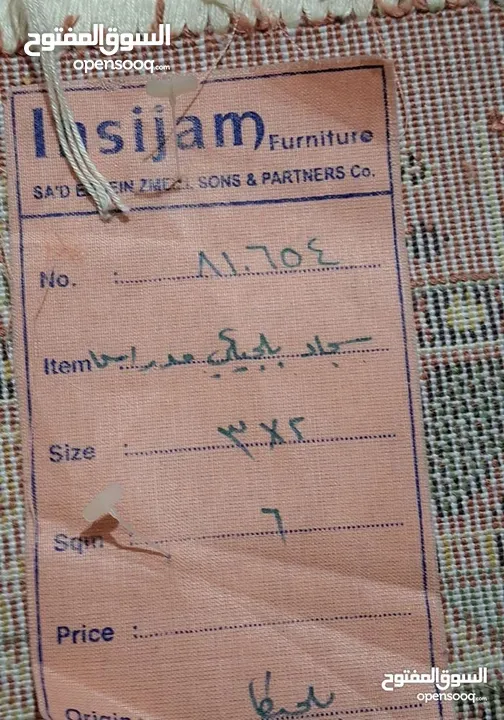 السوق المفتوح
opensooq.com
Insijam Furniture
SA'D E SONS & PARTNERS Co.
No. : ٨١٠٦٥٤
Item سجاد بلجيكي
Size : ٣X٢
Sqm : ٦
Price :
Origin بلجيكا
السوق المفتوح
opensooq.com